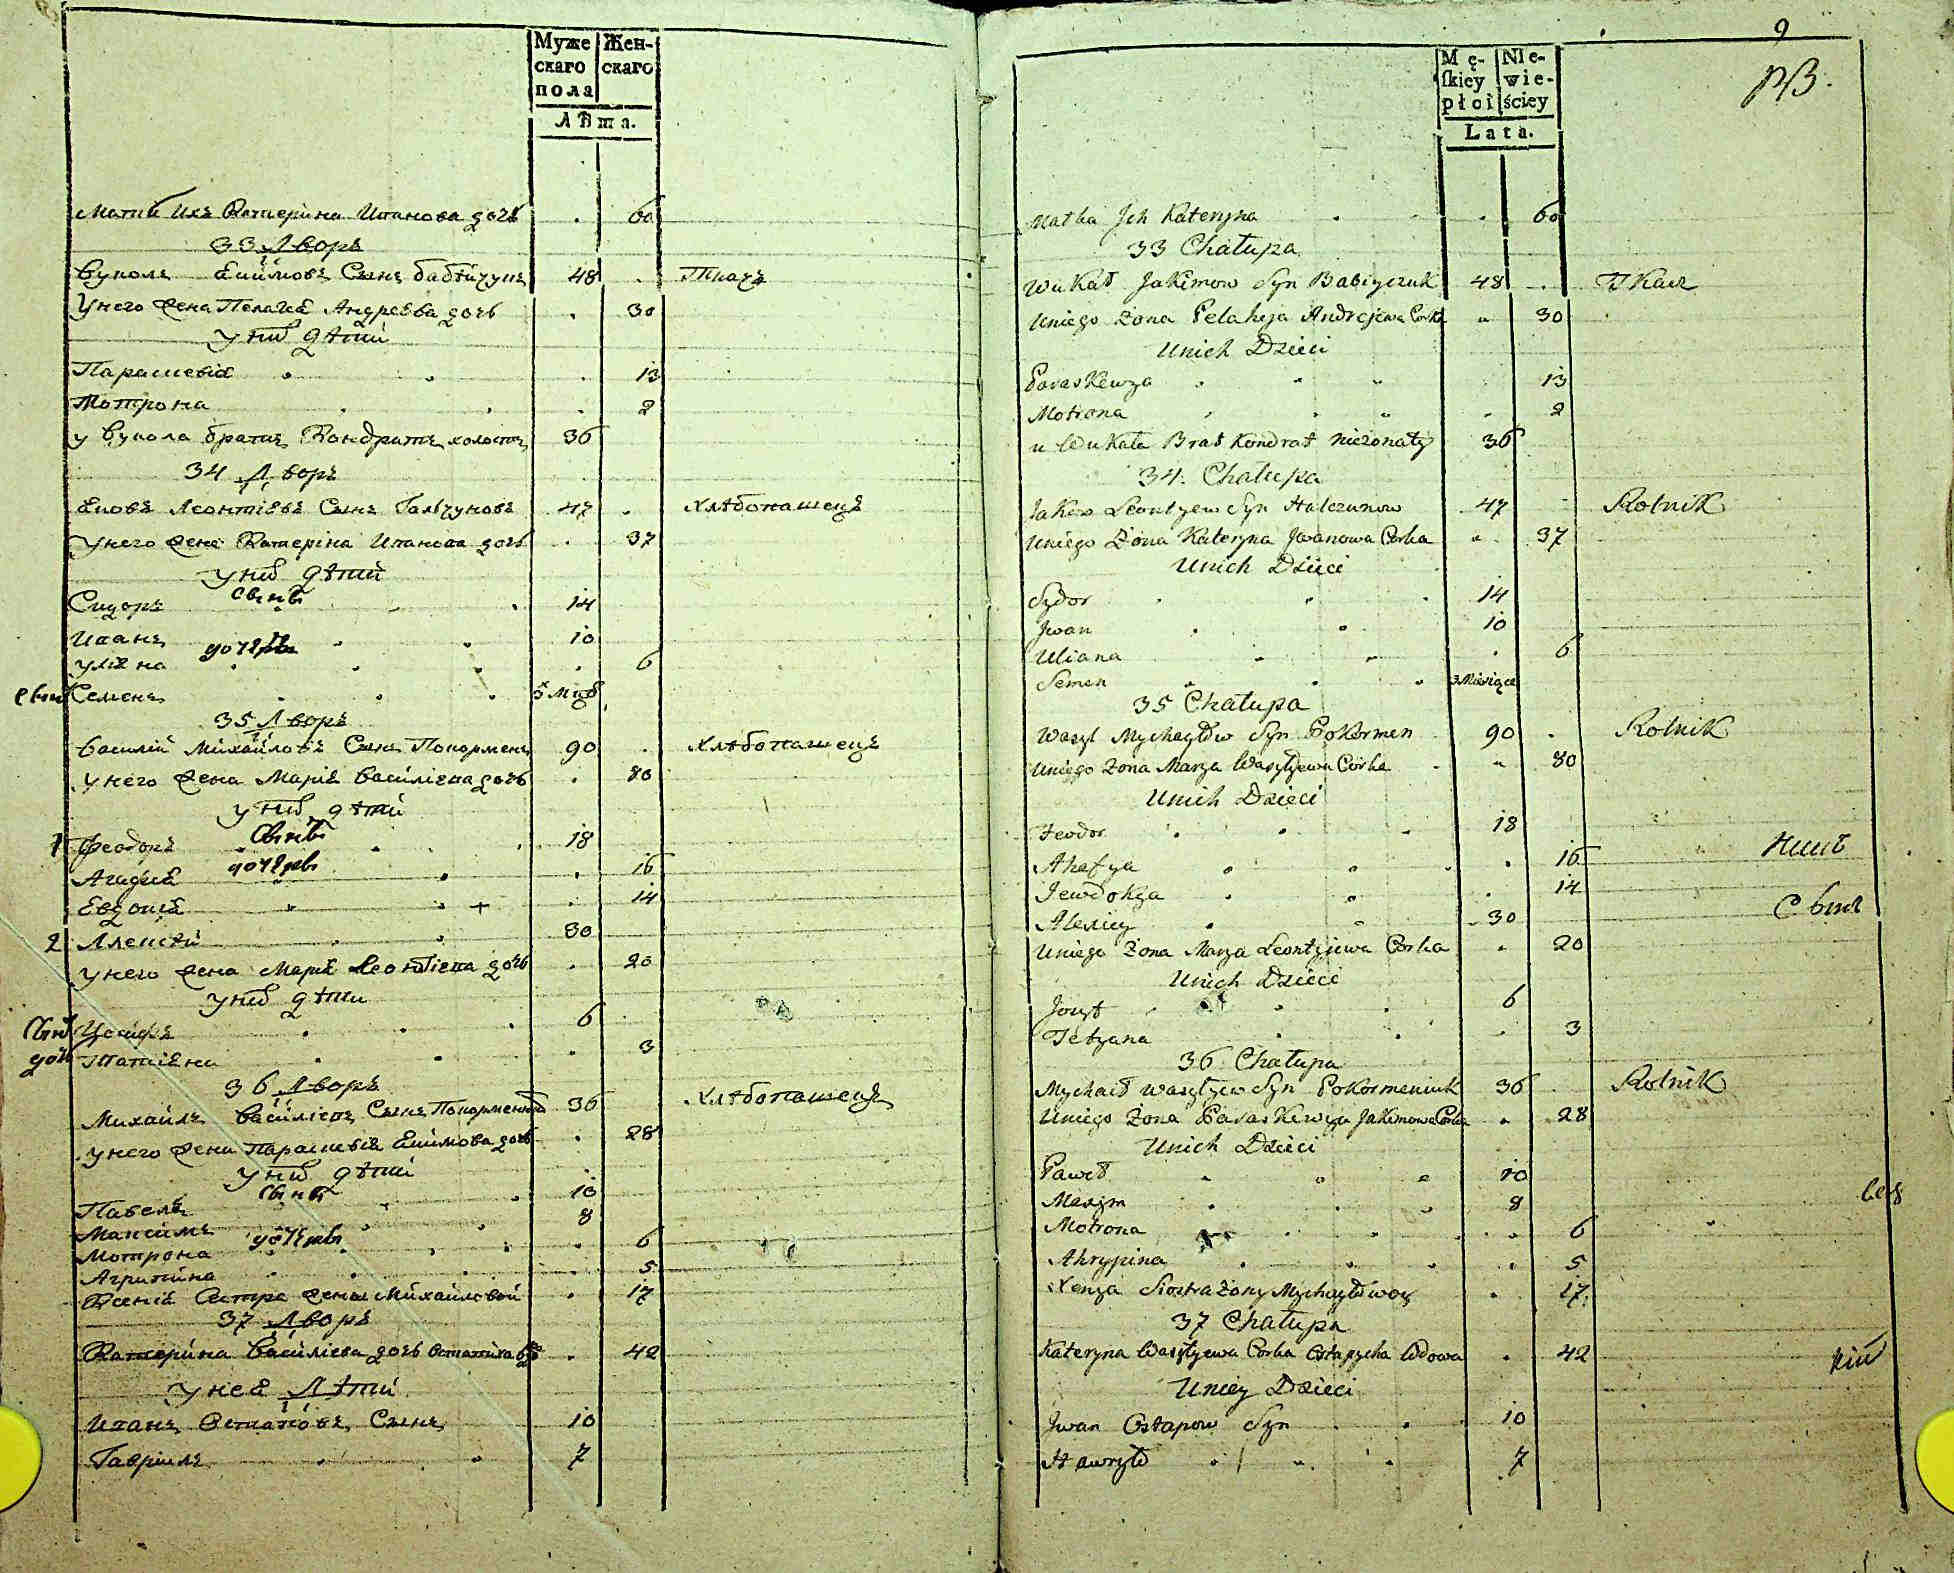 Муже Жен-
скаго скаго
пола
Лѣта.
Мати Ихъ Катерина Иванова дочь . 60
33 Дворъ
Вуколъ Екимовъ Сынъ Бабѣйчукъ 48 . Ткачъ
У него жена Пелагея Андреева дочь . 30
у ных дѣти
Парасковія . . . 13
Мотрона . . . 2
у Вукола братъ Кондратъ холостъ 36
34 Дворъ
Яковъ Леонтіевъ Сынъ Гальчуновъ 47 . Хлѣбопашецъ
У него жена Катеріна Иванова дочь . 37
у ных дѣти
сыны
Сидоръ . . 14
Иванъ . . 10
дочеры
Уляна . . . 6
сын Семенъ . . . 3 Мцы
35 Дворъ
Василій Михайловъ Сынъ Покорменъ 90 . Хлѣбопашецъ
У него жена Марія Василіева дочь . 80
у ных дѣти
Сыны
1 Феодоръ . . . 18
дочеры
Агафія . . 16
Евдокія " . + . 14
2 Алексѣй . . 30
У него жена Марія Леонтіева дочь . 20
у ных дѣти
Сын Иосифъ . . . 6
дочь Татіяна . . . 3
36 Дворъ
Михайлъ Василіевъ Сынъ Покорменюкъ 36 Хлѣбопашецъ
У него жена Парасковія Екимова дочь . 28
у ных дѣти
Сыны
Павелъ . . 10
Максимъ . . 8
дочеры
Мотрона . . . 6
Агрипина . . . 5
Ксенія Сестра жены Михайловой . 17
37 Дворъ
Катерина Василіева дочь Остапиха . 42
У нея Дѣти
Иванъ Остаповъ Сынъ 10
Гаврилъ . . 7
9
Mę- Nie-
skiey wie-
płci ściey
Lata.
Matka Jch Kateryna . . . 60
33 Chałupa
Wukał Jakimow Syn Babiyczuk 48 . Tkacz
Uniego Zona Pelahija Andrejewa Corka " 30
Unich Dzieci
Paraskewya . " " 13
Motrona . . " " 2
u Wukała Brat Kondrat nieżonaty 36
34. Chałupa
Jakow Leontyew Syn Halczunow 47 - Rolnik
Uniego Żona Kateryna Jwanowa Corka " 37
Unich Dzieci
Sydor . . . 14
Jwan . . 10
Uliana . . . 6
Semen " . . 3 Miesiące
35 Chałupa
Wasyl Mychayłow Syn Pokormen 90 . Rolnik
Uniego Zona Marya Wasylyewa Córka . " 80
Unich Dzieci
Teodor . . . 18
Ahafya . . . . 16
Jewdokya . . . 14
Alexiey . . 30
Uniego Żona Marya Leontyiewa Corka . 20
Unich Dzieci
Jozyf . . . 6
Tetyana . . . . 3
36. Chałupa
Mychaił Wasylyew Syn Pokormeniuk 36 . Rolnik
Uniego Żona Paraskewya Jakimowa Corka " 28
Unich Dzieci
Paweł " . " 10
Maxym . . . 8
Motrona . . . . 6
Ahrypina . . . . 5
Xenya Siostra Żony Mychayłowey . 17.
37 Chałupa
Kateryna Wasylyewa Corka Ostapycha Wdowa . 42
Uniey Dzieci
Jwan Ostapow Syn . . 10
Hawrył . . . 7